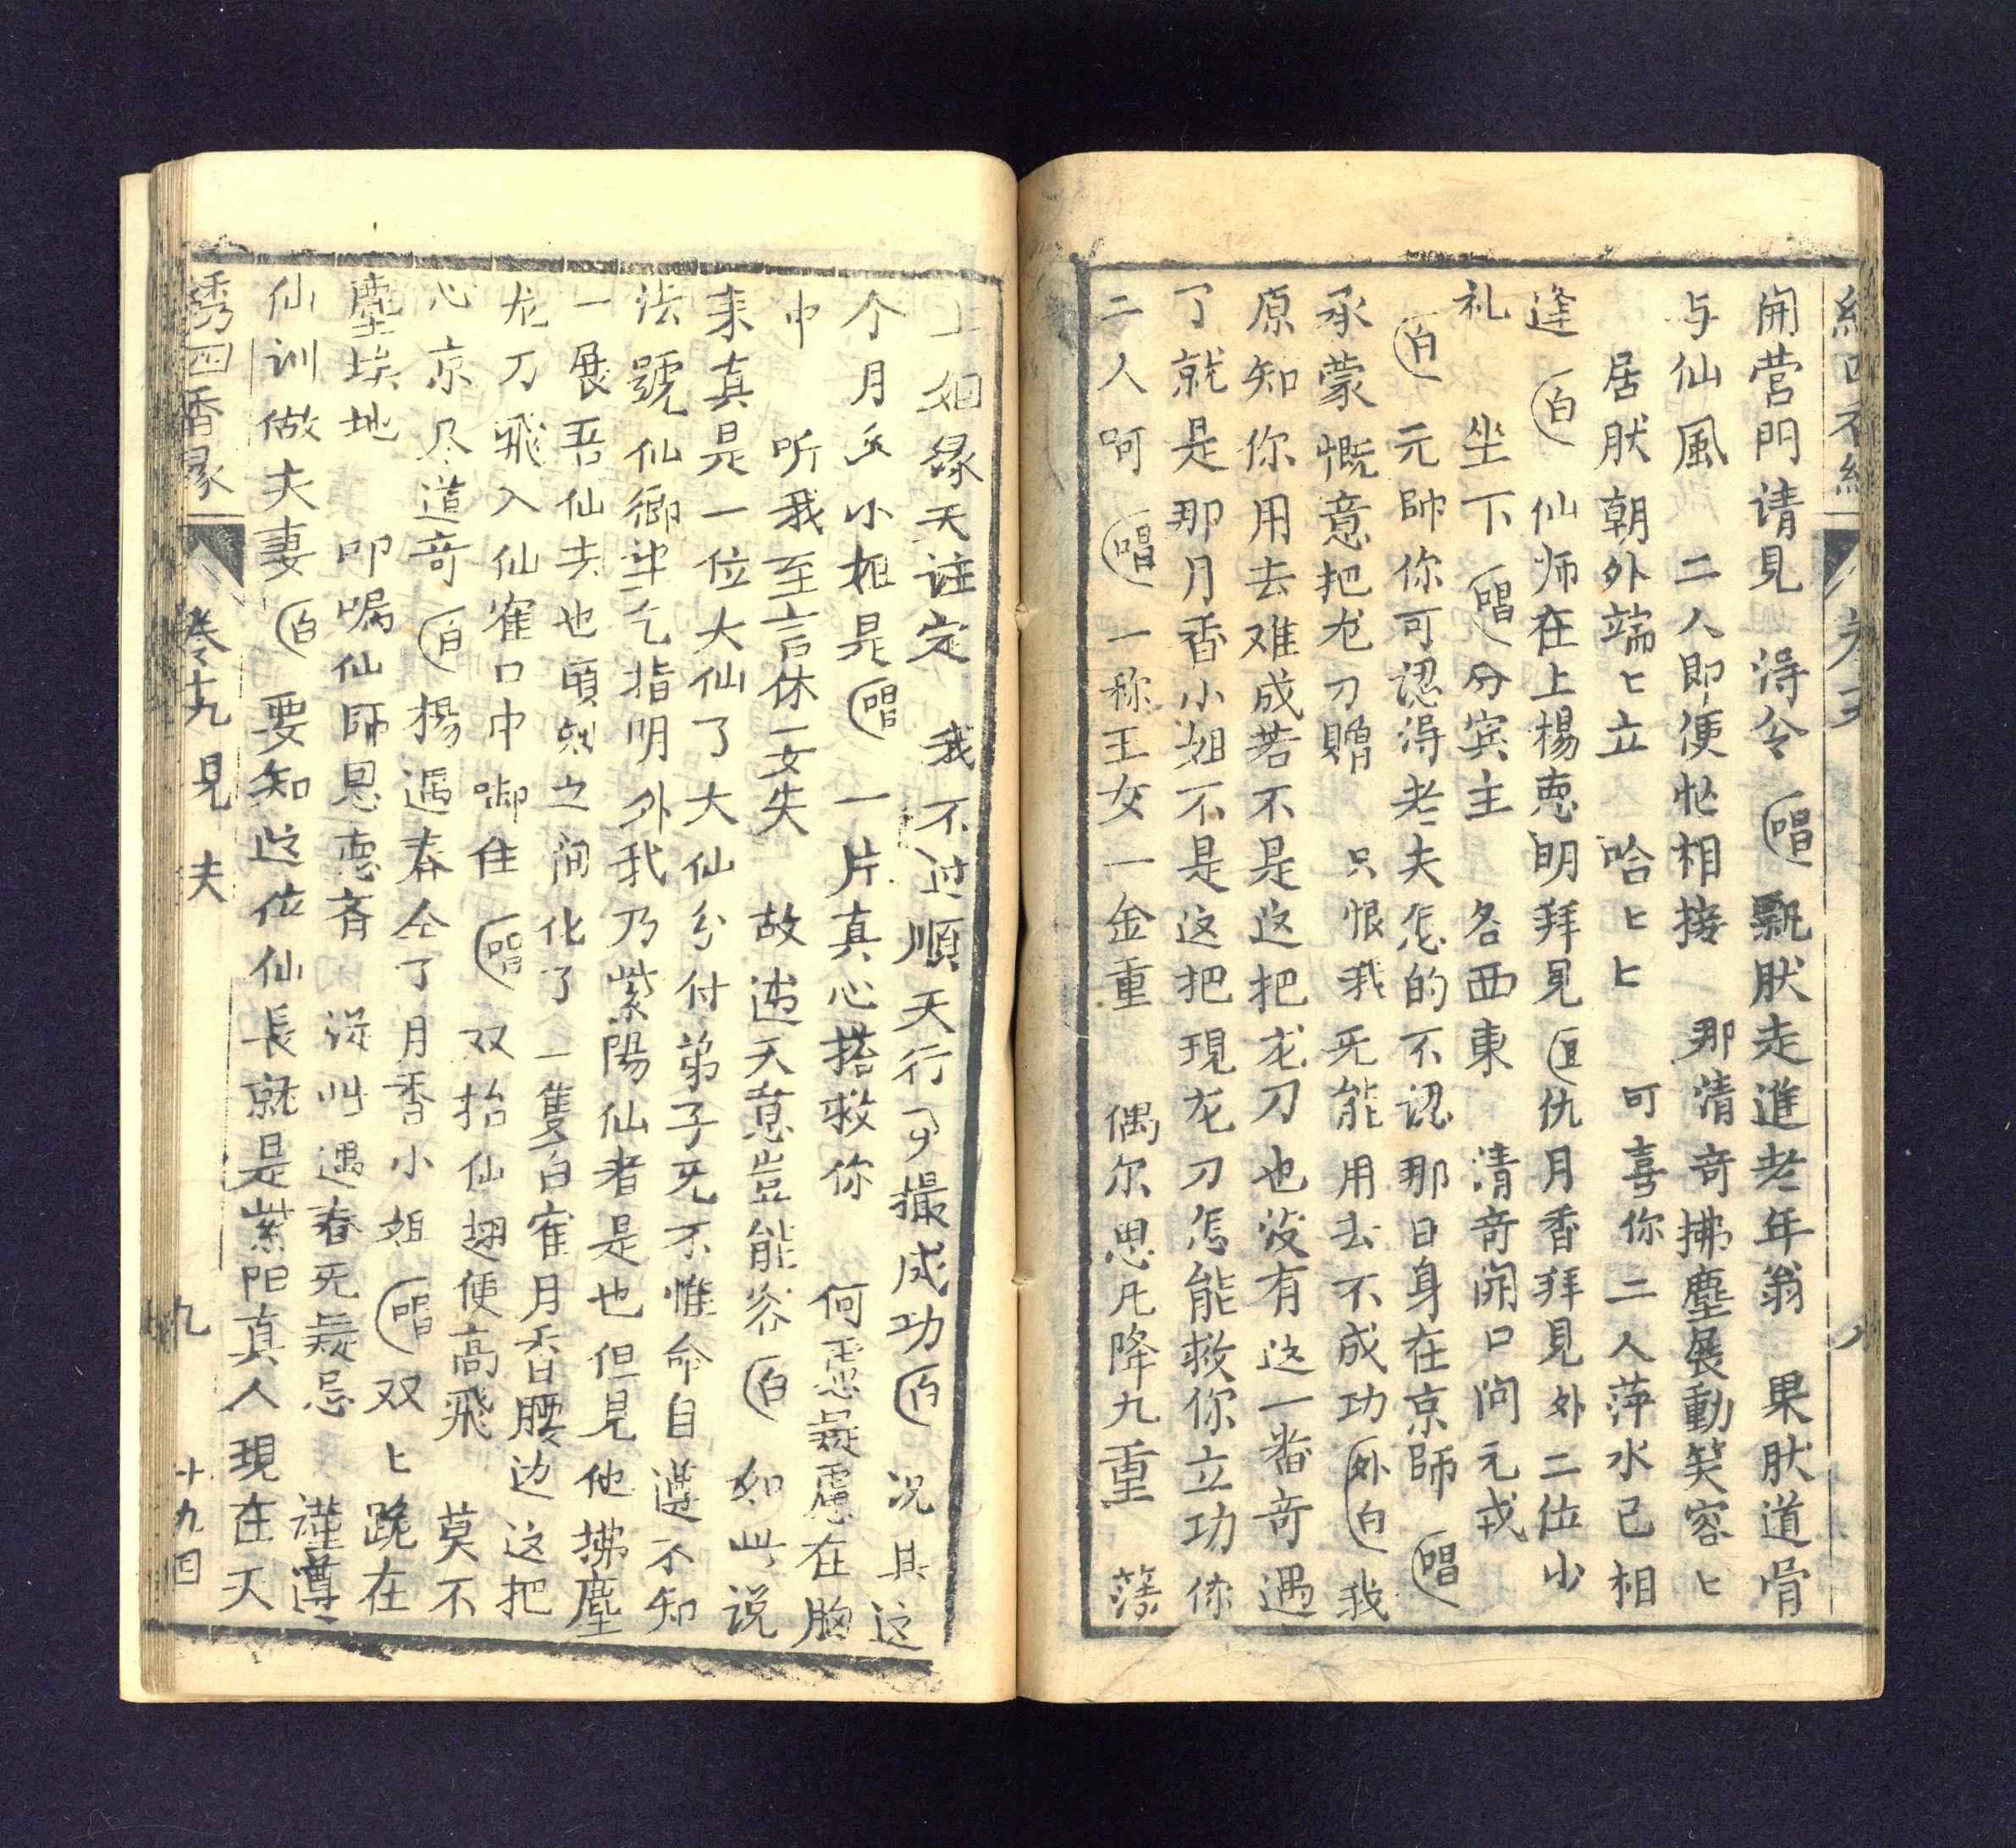 開营門请見 淂令 唱 飄肰走進老年翁 果肰道骨
与仙風 二人即便忙相接 那清奇拂塵展動笑容匕
居肰朝外端匕立 哈匕匕 可喜你二人萍水已相
逢 白 仙师在上楊惪明拜見 旦 仇月香拜見外二位少
礼 坐下 唱 分宾主 各西東 清奇開口问元戎
白 元帥你可認淂老夫怎的不認那日身在京師 唱
承蒙慨意把尤刀贈 只恨我旡能用去不成功 外白 我
原知你用去难成若不是这把龙刀也没有这一番奇遇
了就是那月香小姐不是这把現龙刀怎能救你立功你
二人呵 唱 一称王女一金重 偶尔思凡降九重 蕩
上姻缘天註定 我不过順天行事撮成功 白 况且这
个月香小姐是 唱 一片真心搭救你 何須疑慮在胸
中 听我至言休要失 故违天意豈能容 白 如此说
来真是一位大仙了大仙分付弟子旡不惟命自遵不知
法號仙鄉望乞指明外我乃紫陽仙者是也但見他拂塵
一展吾仙去也頃刻之间化了一隻白寉月香腰边这把
龙刀飛入仙寉口中啣住 唱 双抬仙翅便高飛 莫不
心京尽道奇 白 楊遇春仝了月香小姐 唱 双匕跪在
塵埃地 叩嘱仙師恩惪斉 从此遇春死疑忌 谨尊
仙训做夫妻 白 要知这位仙長就是紫阳真人現在天
绣四香缘 卷十九 見夫 九 十九回